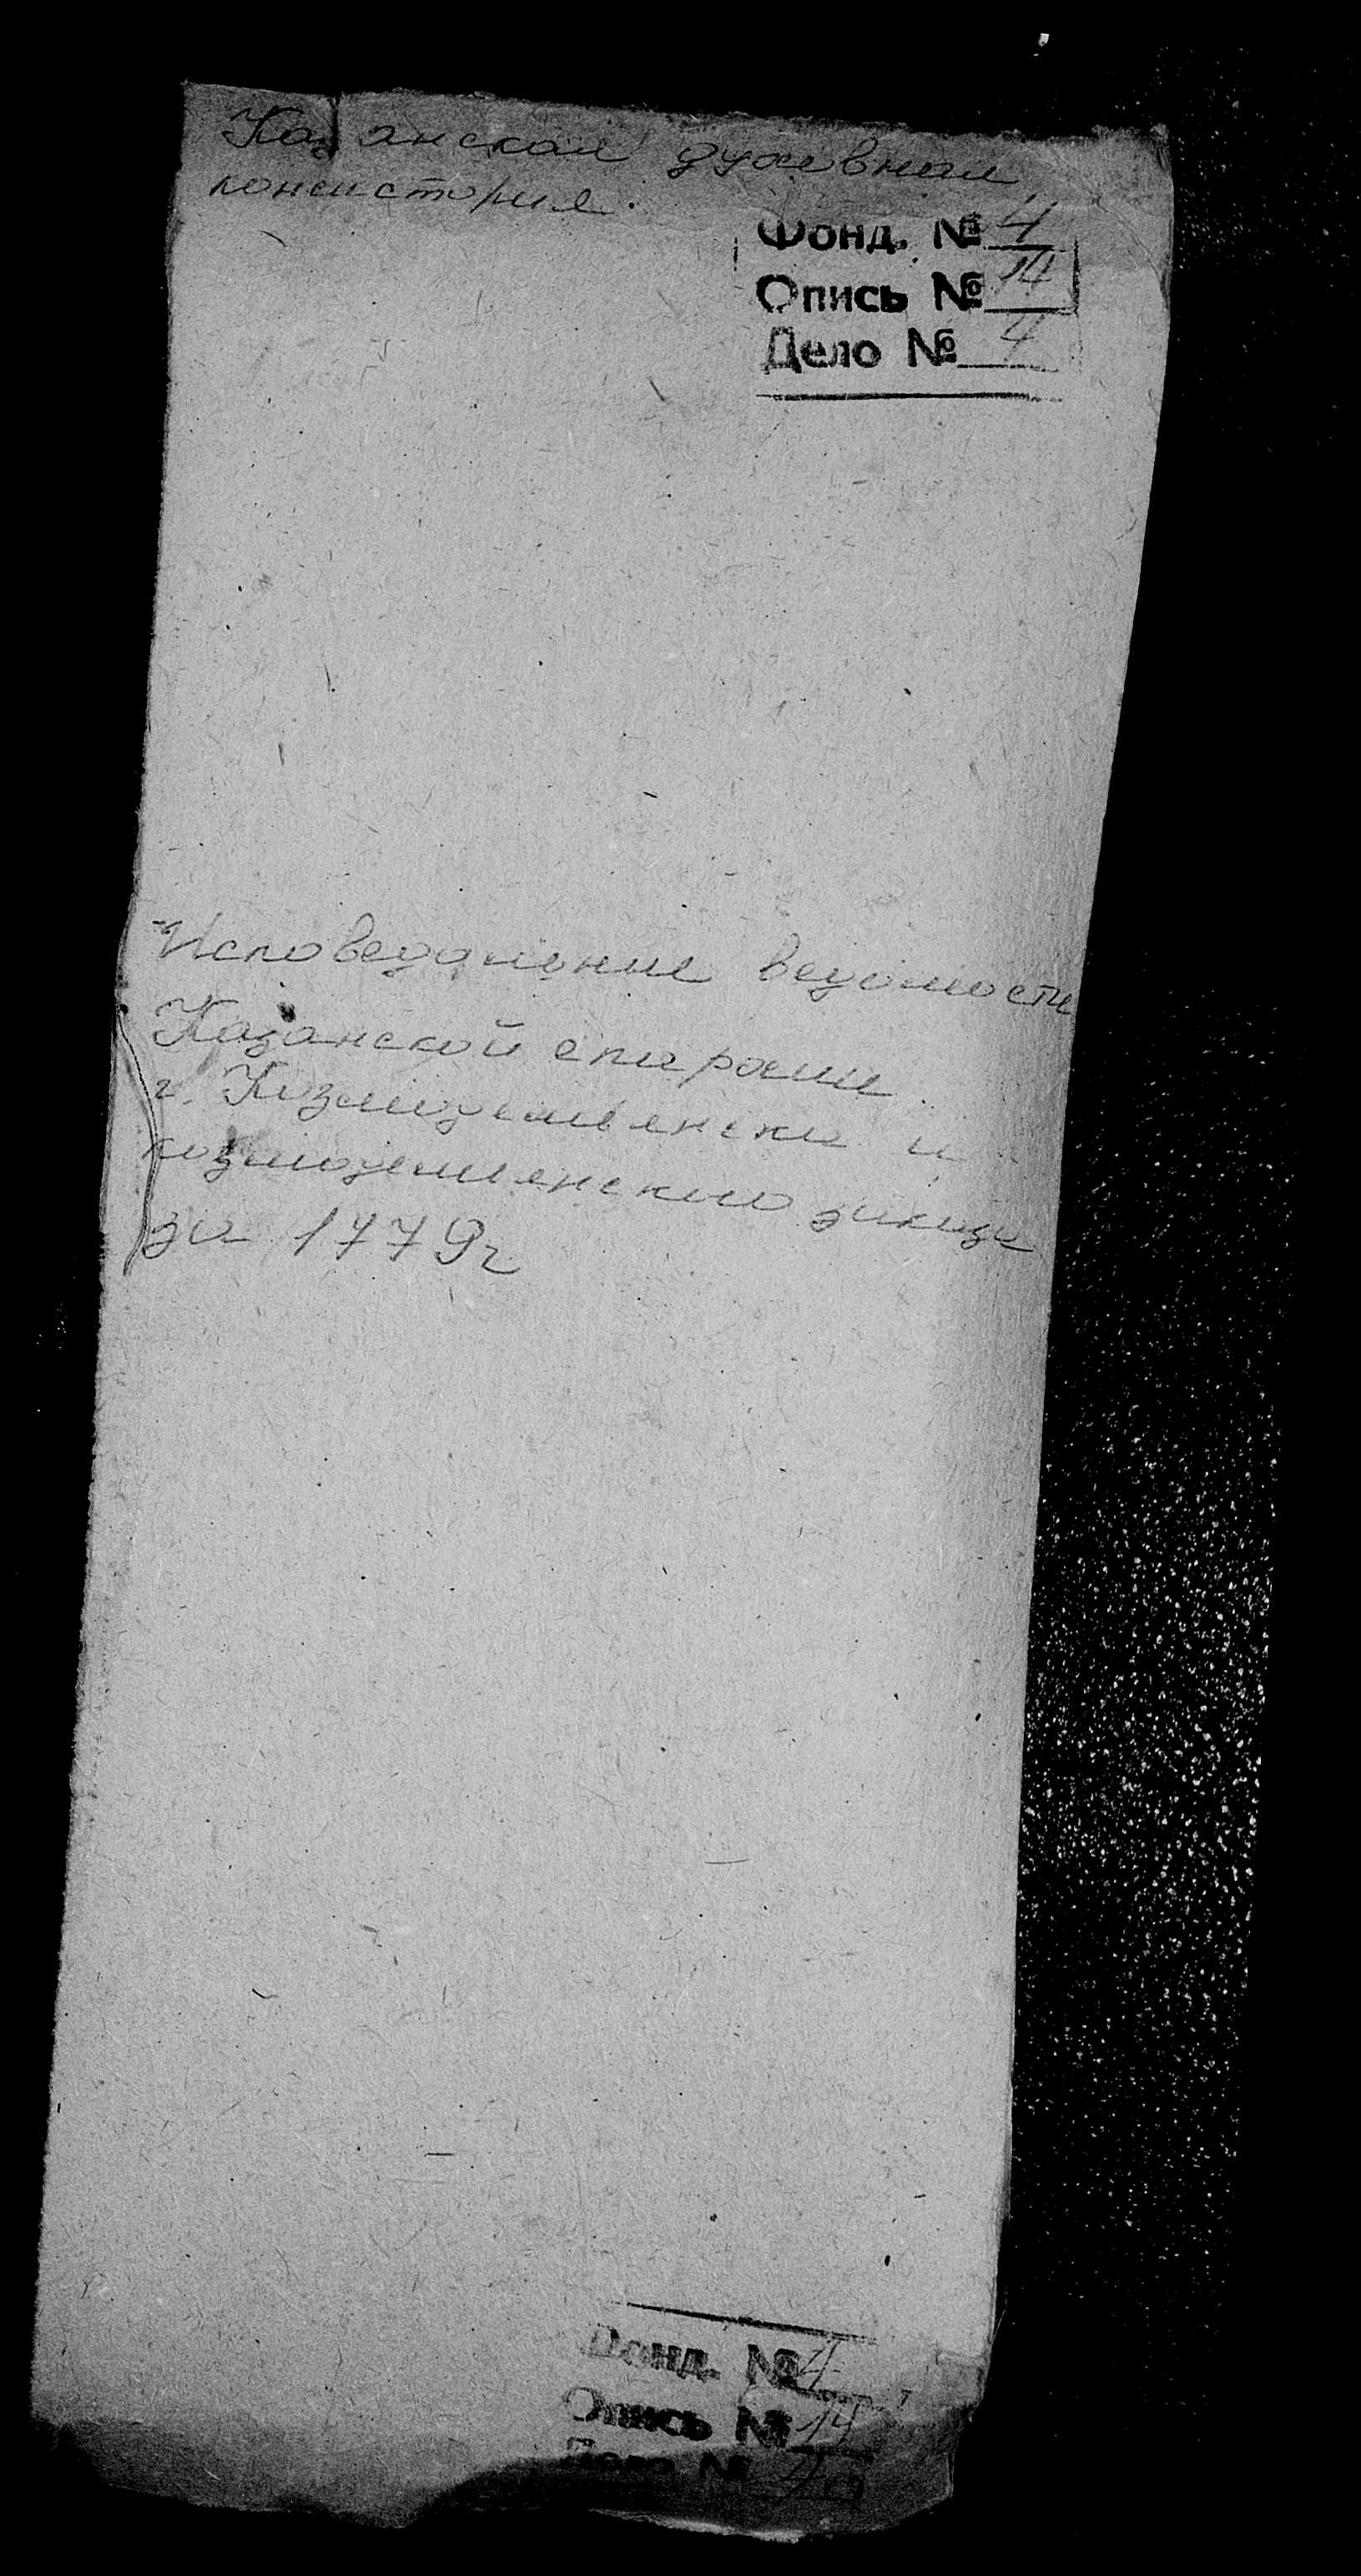 Казанская духовная
консистория.
Фонд. № 4
Опись № 14
Дело № 4
Исповедальные ведомости
Казанской епархии
г. Козмодемьянска и
козмодемьянского
за 1779г
Фонд. № 4
Опись № 14
Дело № 4